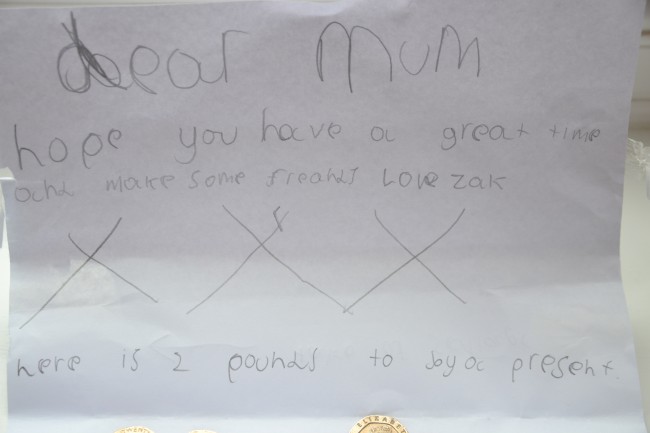 dear mum
hope you have a great time
and make some freands Love zak
X X X
here is 2 pounds to bay a present.
ELIZABE